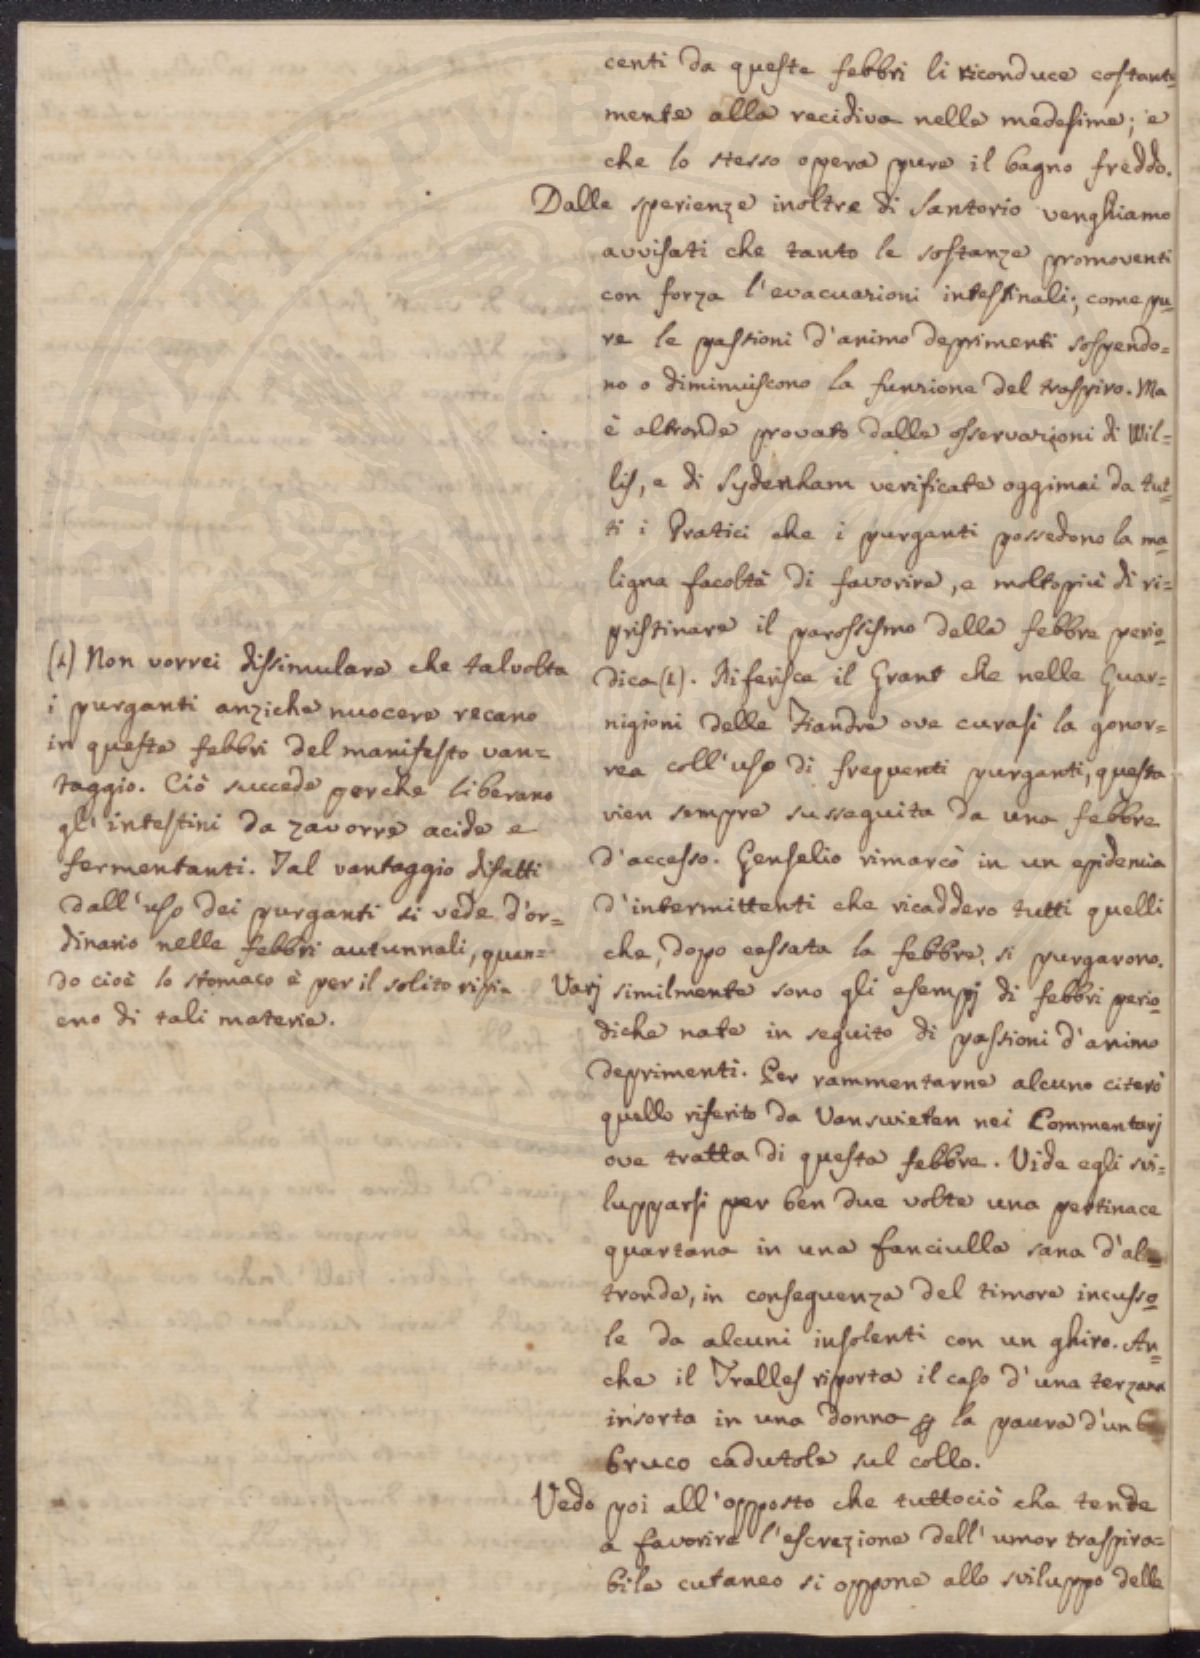 centi da queste febbri li riconduce costante=
mente alla recidiva nelle medesime; e
che lo stesso opera pure il bagno freddo.
Dalle sperienze inoltre di Santorio venghiamo
avvisati che tanto le sostanze promoventi
con forza l'evacuazioni intestinali; come pu=
re le passioni d'animo deprimenti sospendo=
no o diminuiscono la funzione del traspiro. Ma
è altronde provato dalle osservazioni di Wil=
lis, e di Sydenham verificate oggimai da tut=
ti i Pratici che i purganti possedono la ma=
ligna facoltà di favorire, e moltopiù di ri=
pristinare il parossismo della febbre perio=
dica (1). Riferisce il Grant che nelle Guar=
nigioni delle Fiandre ove curasi la gonor=
rea coll'uso di frequenti purganti, questa
vien sempre susseguita da una febbre
d'accesso. Genselio rimarcò in un epidemia
d'intermittenti che ricaddero tutti quelli
che, dopo cessata la febbre, si purgarono.
Varj similmente sono gli esempj di febbri perio=
diche nate in seguito di passioni d'animo
deprimenti. Per rammentarne alcuno citerò
quello riferito da Vanswieten nei Commentarj
ove tratta di questa febbre. Vide egli svi=
lupparsi per ben due volte una pertinace
quartana in una fanciulla sana d'al=
tronde, in conseguenza del timore incusso=
le da alcuni insolenti con un ghiro. An=
che il Tralles riporta il caso d'una terzana
insorta in una donna p la paura d'un
bruco cadutole sul collo.
Vedo poi all'opposto che tuttociò che tende
a favorire l'escrezione dell'umor traspira=
bile cutaneo si oppone allo sviluppo delle
(1) Non vorrei dissimulare che talvolta
i purganti anziche nuocere recano
in queste febbri del manifesto van=
taggio. Ciò succede perche liberano
gl'intestini da zavorre acide e
fermentanti. Tal vantaggio difatti
dall'uso dei purganti si vede d'or=
dinario nelle febbri autunnali, quan=
do cioè lo stomaco è per il solito ripi=
eno di tali materie.